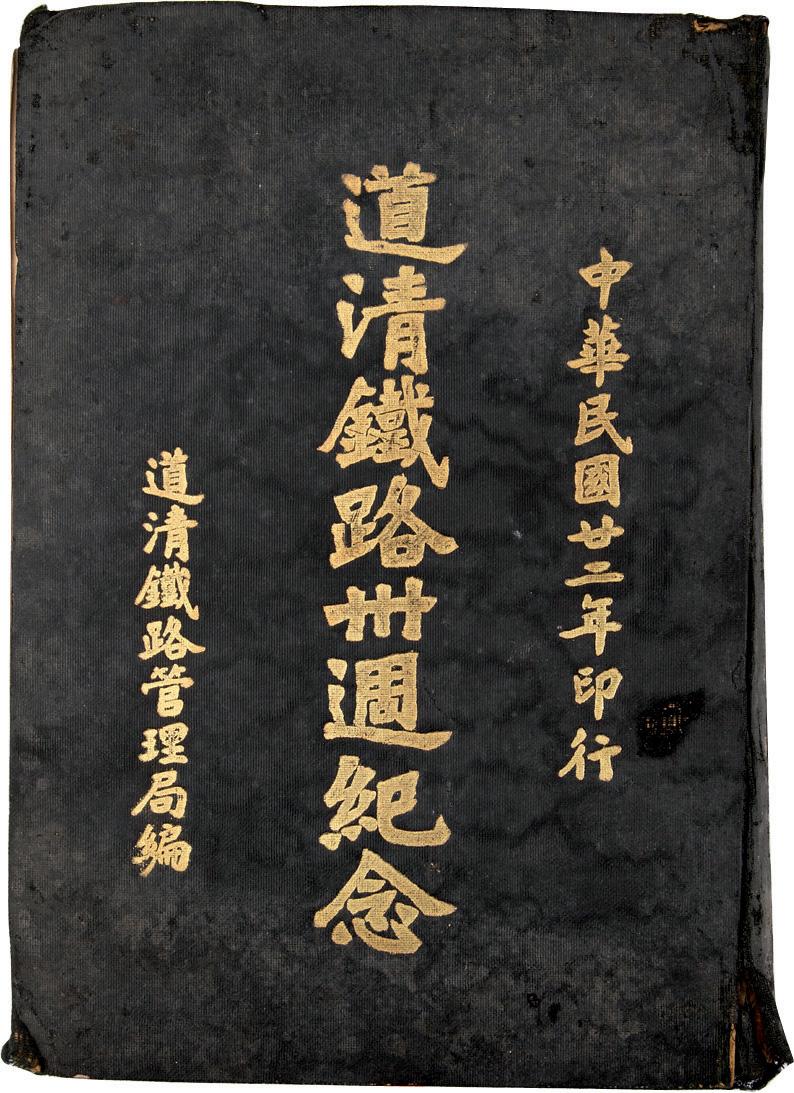 中華民國廿二年印行
道清鐵路卅週紀念
道清鐵路管理局編